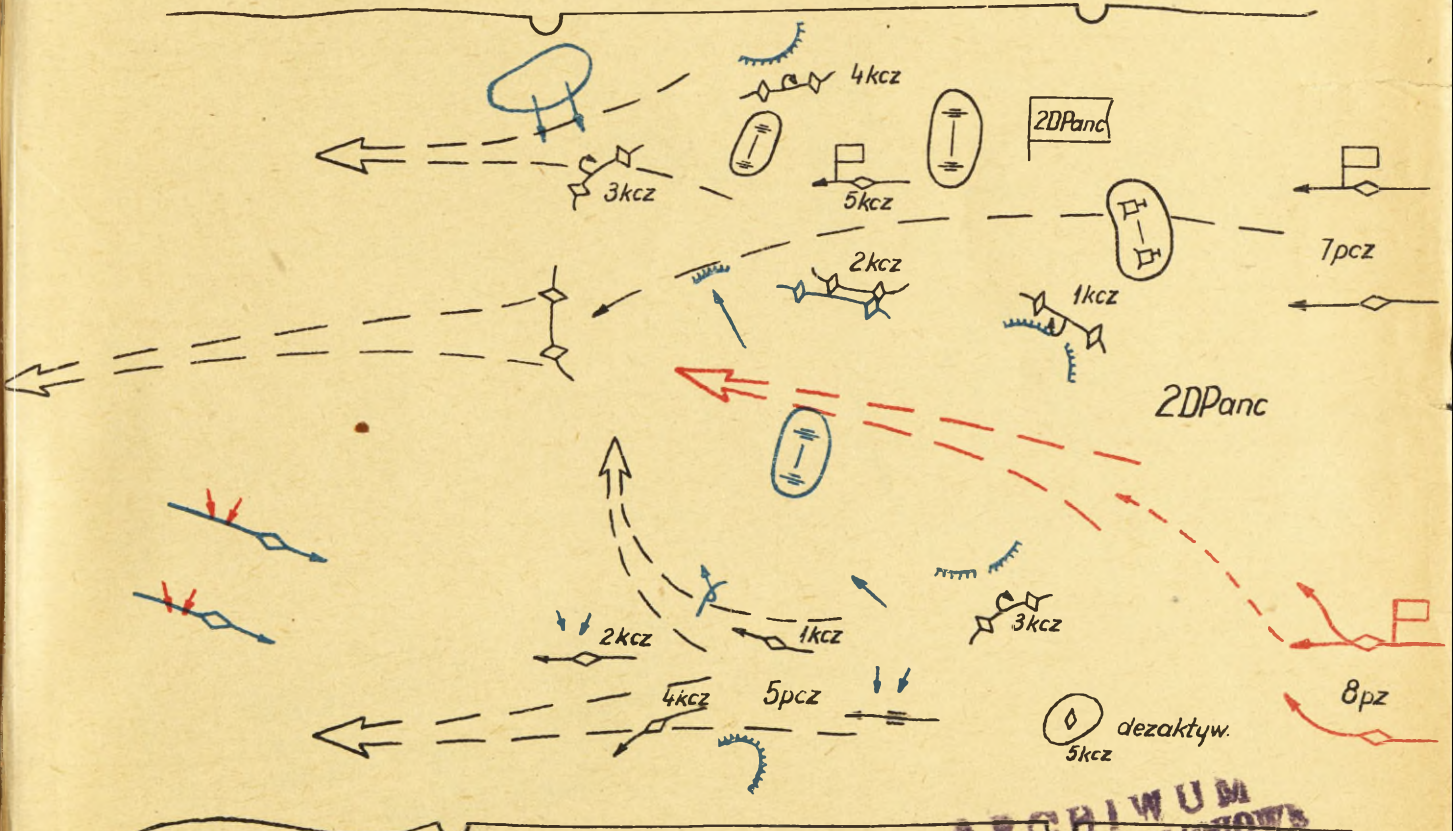 4kcz
2DPanc
3kcz
5kcz
7pcz
2kcz
1kcz
2DPanc
2kcz
1kcz
3kcz
4kcz
5pcz
8pz
dezaktyw.
5kcz
ARCHIWUM